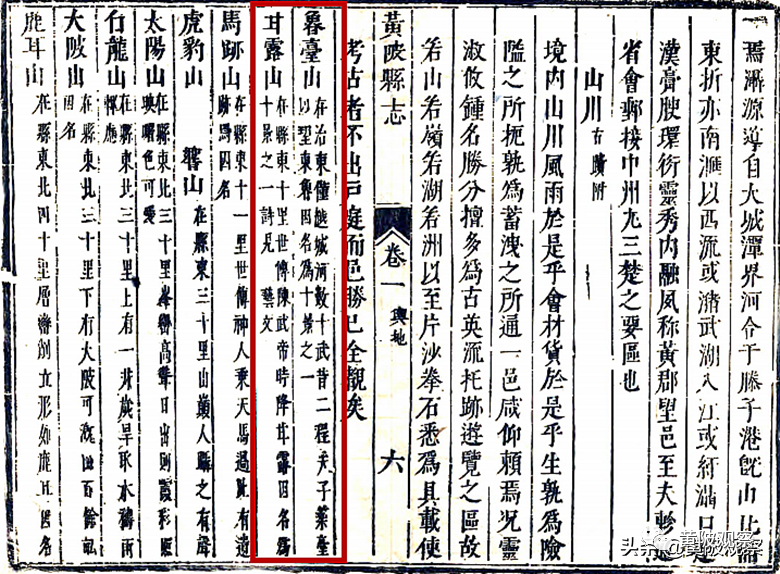 焉灄源導于大城潭界河合于滕子港旣山北
東折亦南滙以西流或瀦武湖入江或紆灄口
漢膏腴環衍靈秀內融風称黃郡望邑至夫軫
省會郵接中州尤三楚之要區也
山川古蹟附
境內山川風雨於是乎會材貨於是乎生孰為險
隘之所扼孰為蓄洩之所通一邑咸仰賴焉况靈
淑攸鍾名勝分擅多為古英流托跡遊覽之區故
若山若嶺若湖若洲以至片沙拳石悉為具載使
黃陂縣志 卷一 輿地 六
考古者不出戶庭而邑勝已全覩矣
魯臺山 在治東僅越城河數十武昔二程夫子築臺以望東魯因名為十景之一
甘露山 在縣東十里世傳陳武帝時降甘露因名為十景之一詩見藝文
馬跡山 在縣東十一里世傳神人乘天馬過此有遺跡焉因名
虎豹山 響山 在縣東三十里山巔人驟之有聲
太陽山 在縣東北三十里峯巒高聳日出則霞彩照映曙色可愛
石龍山 在縣東北三十里上有一井歲旱取水禱雨輒應
大陂山 在縣東北三十里下有大陂可溉田百餘畝因名
鹿耳山 在縣東北四十里層巒削立形如鹿耳因名
头条@黄陂观察
黄陂观察